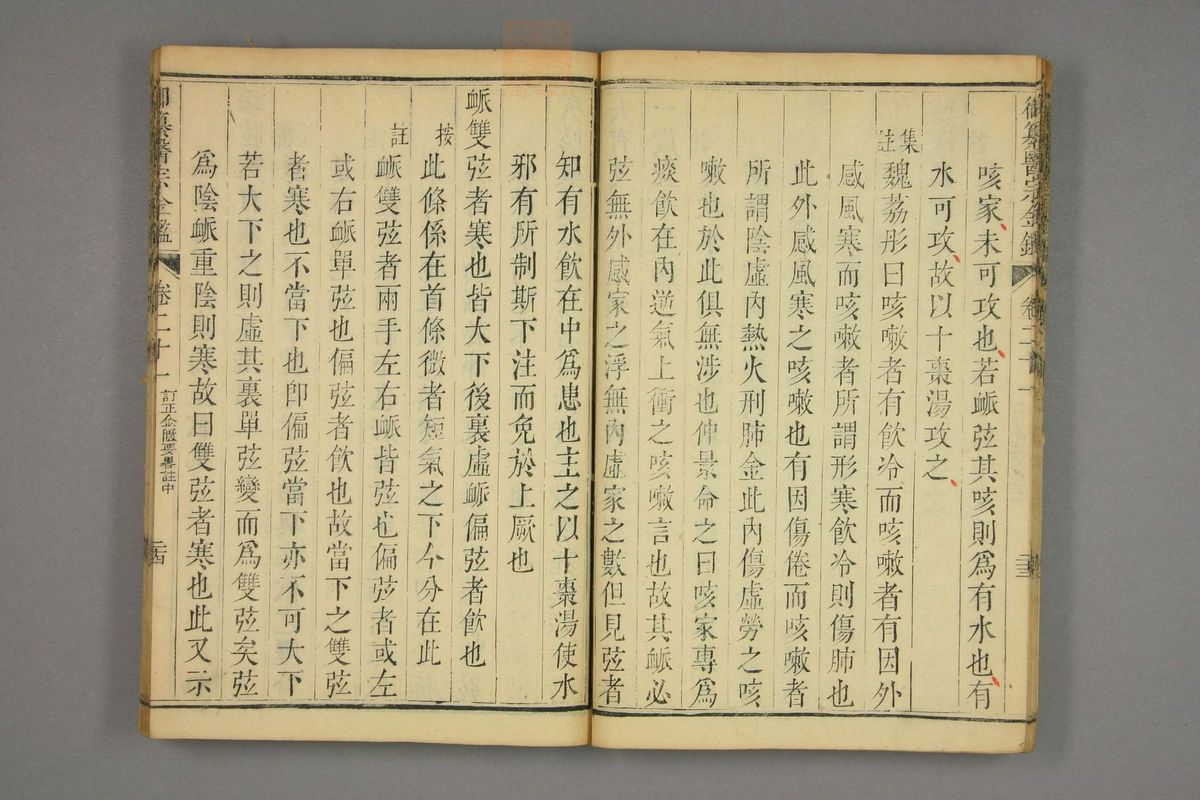 御纂醫宗金鑑 卷二十一 二三
咳家未可攻也若䘑弦其咳則爲有水也有
水可攻故以十棗湯攻之
集註 魏荔彤曰咳嗽者有飲冷而咳嗽者有因外
感風寒而咳嗽者所謂形寒飲冷則傷肺也
此外感風寒之咳嗽也有因傷倦而咳嗽者
所謂陰虛內熱火刑肺金此內傷虛勞之咳
嗽也於此俱無涉也仲景命之曰咳家專爲
痰飲在內逆氣上衝之咳嗽言也故其䘑必
弦無外感家之浮無內虛家之數但見弦者
知有水飲在中爲患也主之以十棗湯使水
邪有所制斯下注而免於上厥也
䘑雙弦者寒也皆大下後裏虛䘑偏弦者飲也
按 此條係在首條微者短氣之下今分在此
註 䘑雙弦者兩手左右䘑皆弦也偏弦者或左
或右䘑單弦也偏弦者飲也故當下之雙弦
者寒也不當下也卽偏弦當下亦不可大下
若大下之則虛其裏單弦變而爲雙弦矣弦
爲陰䘑重陰則寒故曰雙弦者寒也此又示
御纂醫宗金鑑 卷二十一 訂正金匱要畧註中 二四